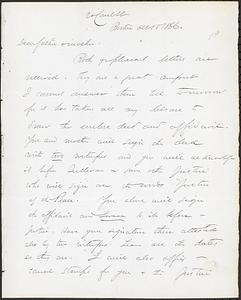 Boston Dec 18 1861.
Dear father & mother.
Both pleasant letters are
received. They are a great comfort
I cannot answer them till tomorrow
for it has taken all my leisure to
draw the enclosed deed and affidavit.
You and mother will sign the deed
with two witnesses and you will acknowledge
it before Sullivan as Justice
who will sign as Justice
of the Peace. You alone will sign
the affidavit and to it before a
Justice. Have your signature there attested
also by two witnesses. Leave all the dates
as they are. I will also affix
cancel stamps for you & the Justice